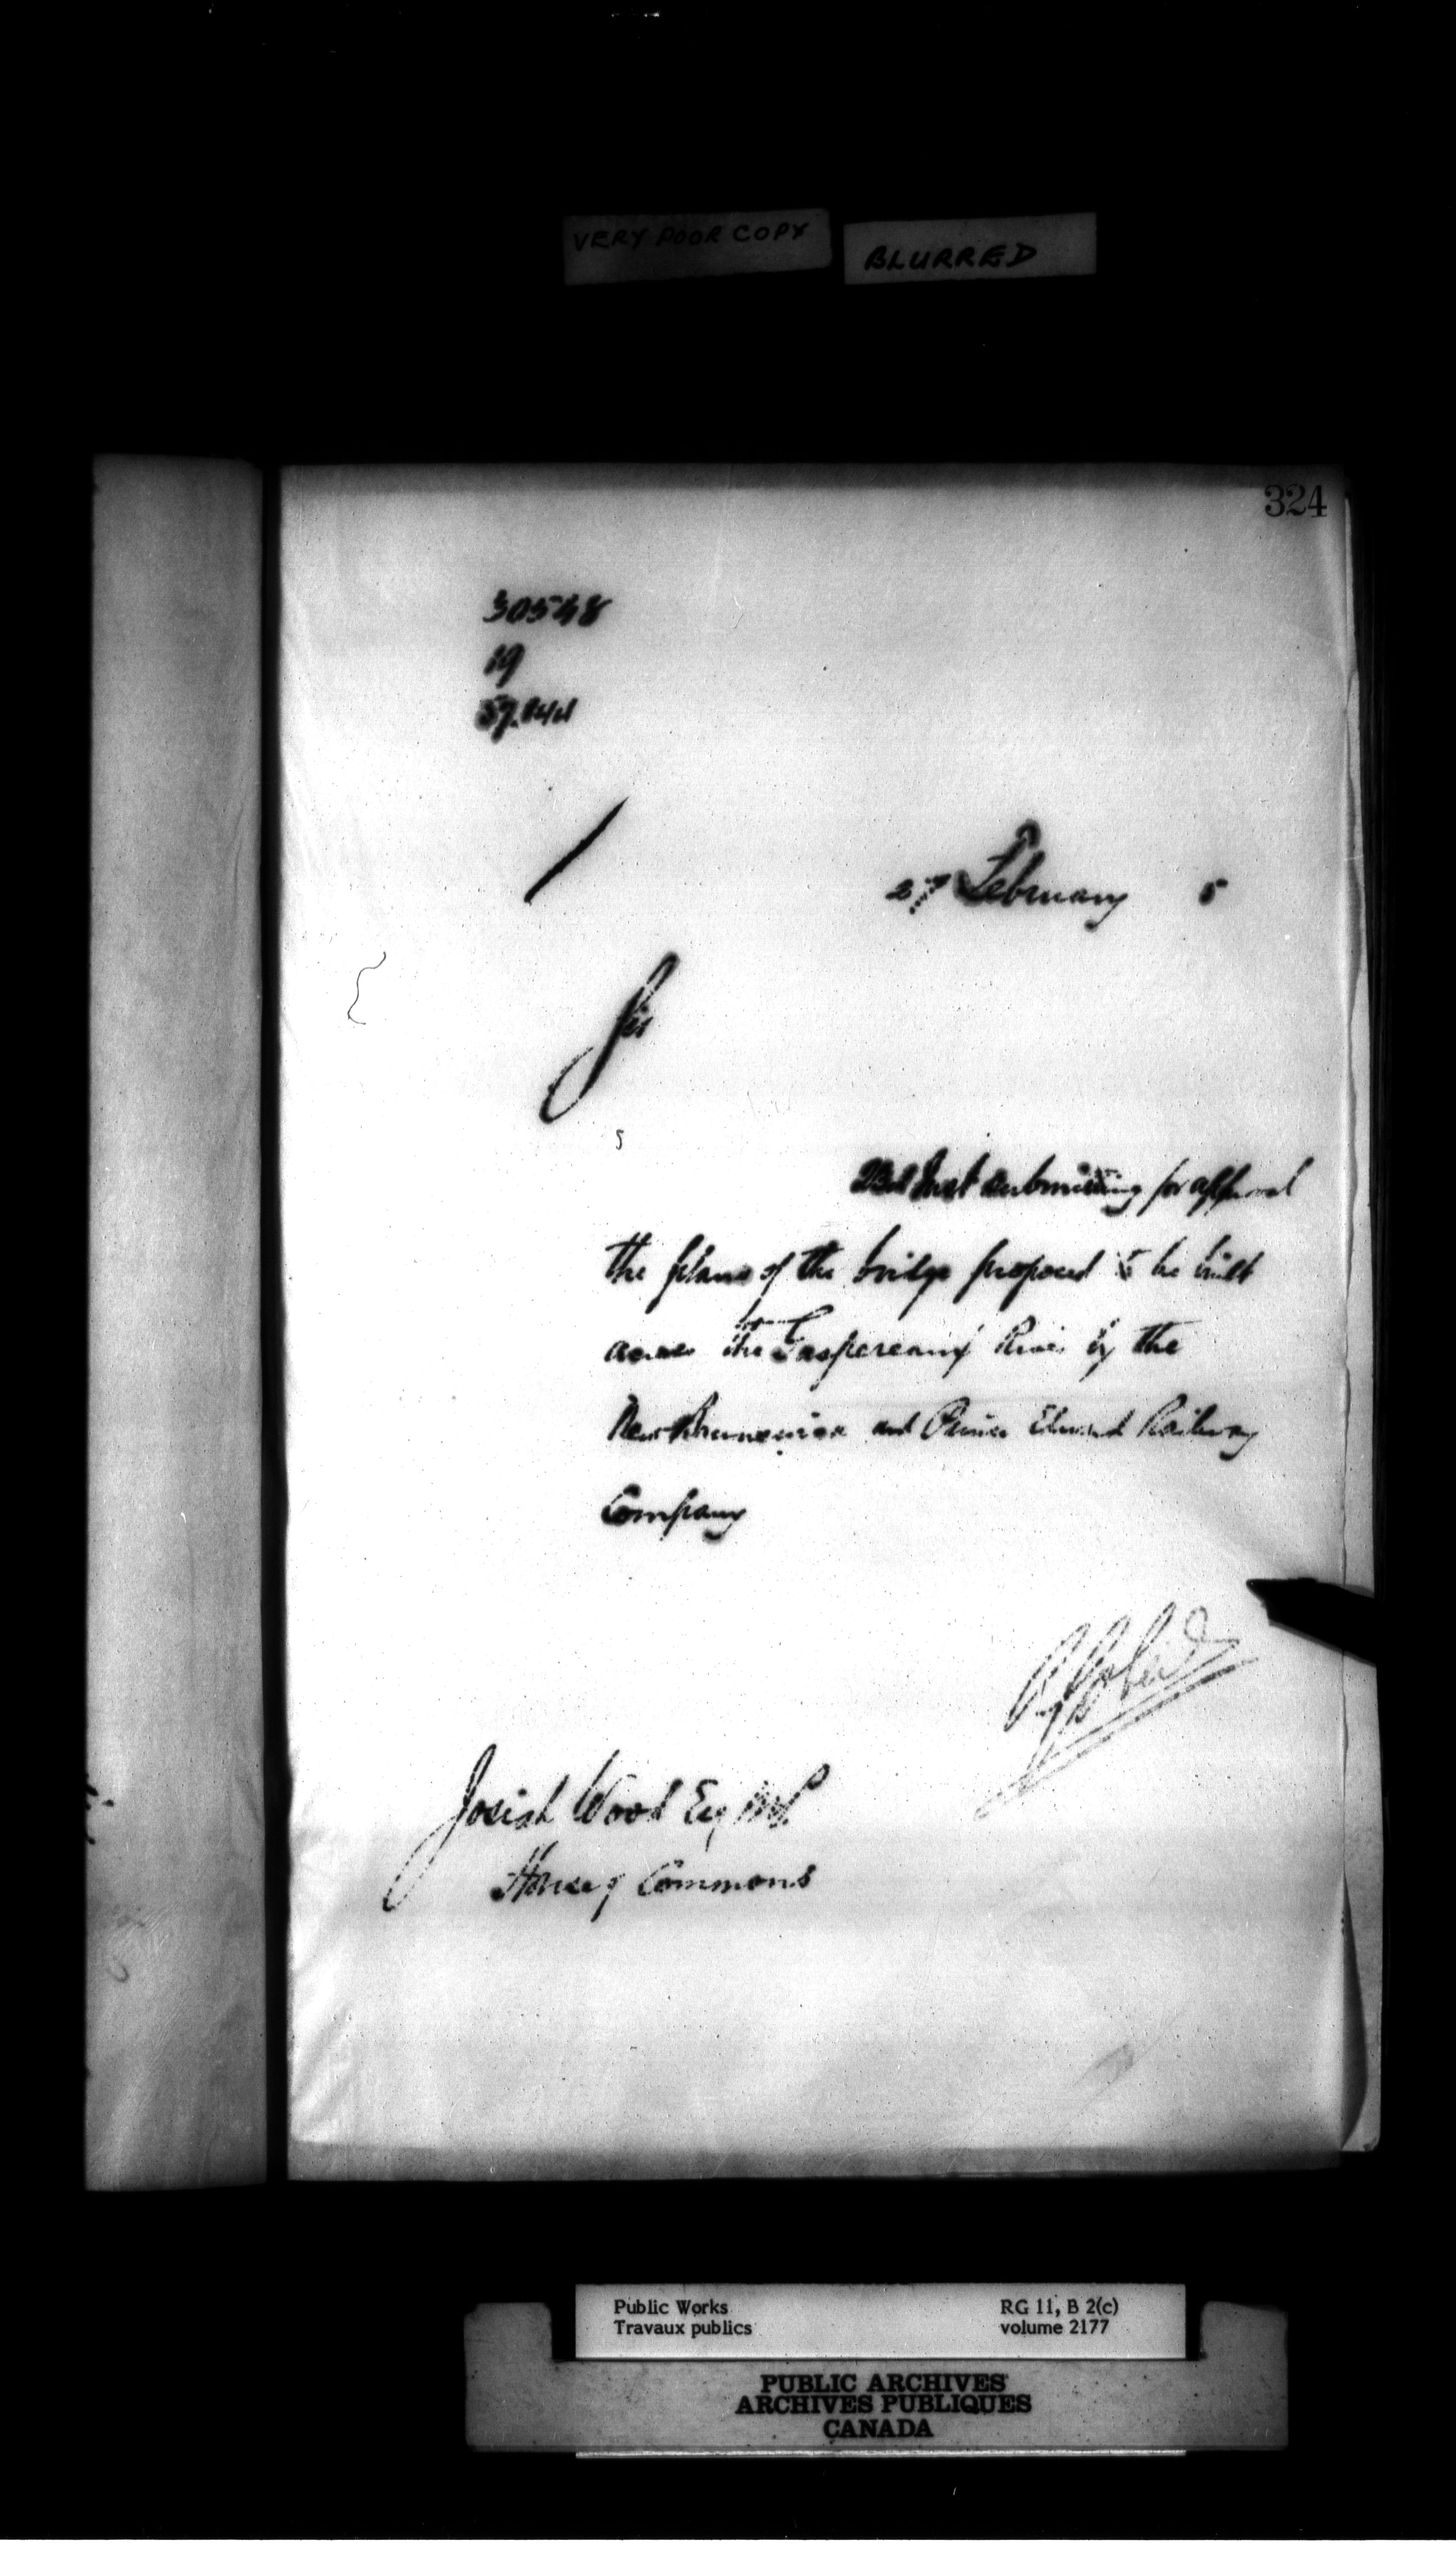 VERY POOR COPY
BLURRED
324
30548
19
27 February 5
Sir
23rd Inst submitting for approval
the plans of the bridge proposed to be built
across the Gaspereaux River by the
New Brunswick and Prince Edward Railway
Company
Josiah Wood Esq M.P.
House of Commons
Public Works
Travaux publics
RG 11, B 2(c)
volume 2177
PUBLIC ARCHIVES
ARCHIVES PUBLIQUES
CANADA